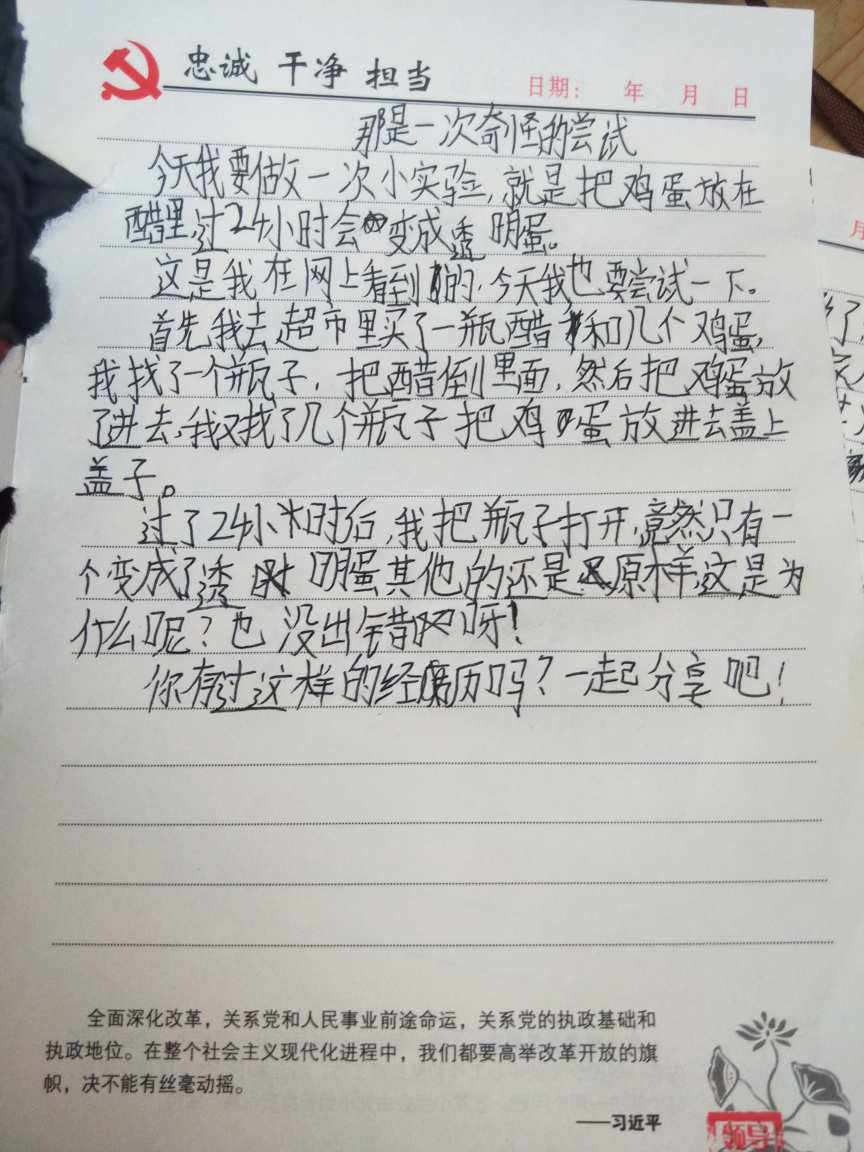 忠诚 干净 担当
日期： 年 月 日
那是一次奇怪的尝试
今天我要做一次小实验,就是把鸡蛋放在
醋里,过24小时会变成透明蛋。
这是我在网上看到的,今天我也要尝试一下。
首先,我去超市里买了一瓶醋和几个鸡蛋,
我找了一个瓶子,把醋倒里面,然后把鸡蛋放
了进去,我又找了几个瓶子把鸡蛋放进去盖上
盖子。
过了24小时后,我把瓶子打开,竟然只有一
个变成了透明蛋其他的还是原样,这是为
什么呢?也没出错呀!
你有过这样的经历吗?一起分享吧!
全面深化改革，关系党和人民事业前途命运，关系党的执政基础和
执政地位。在整个社会主义现代化进程中，我们都要高举改革开放的旗
帜，决不能有丝毫动摇。
——习近平
领导
月
了,